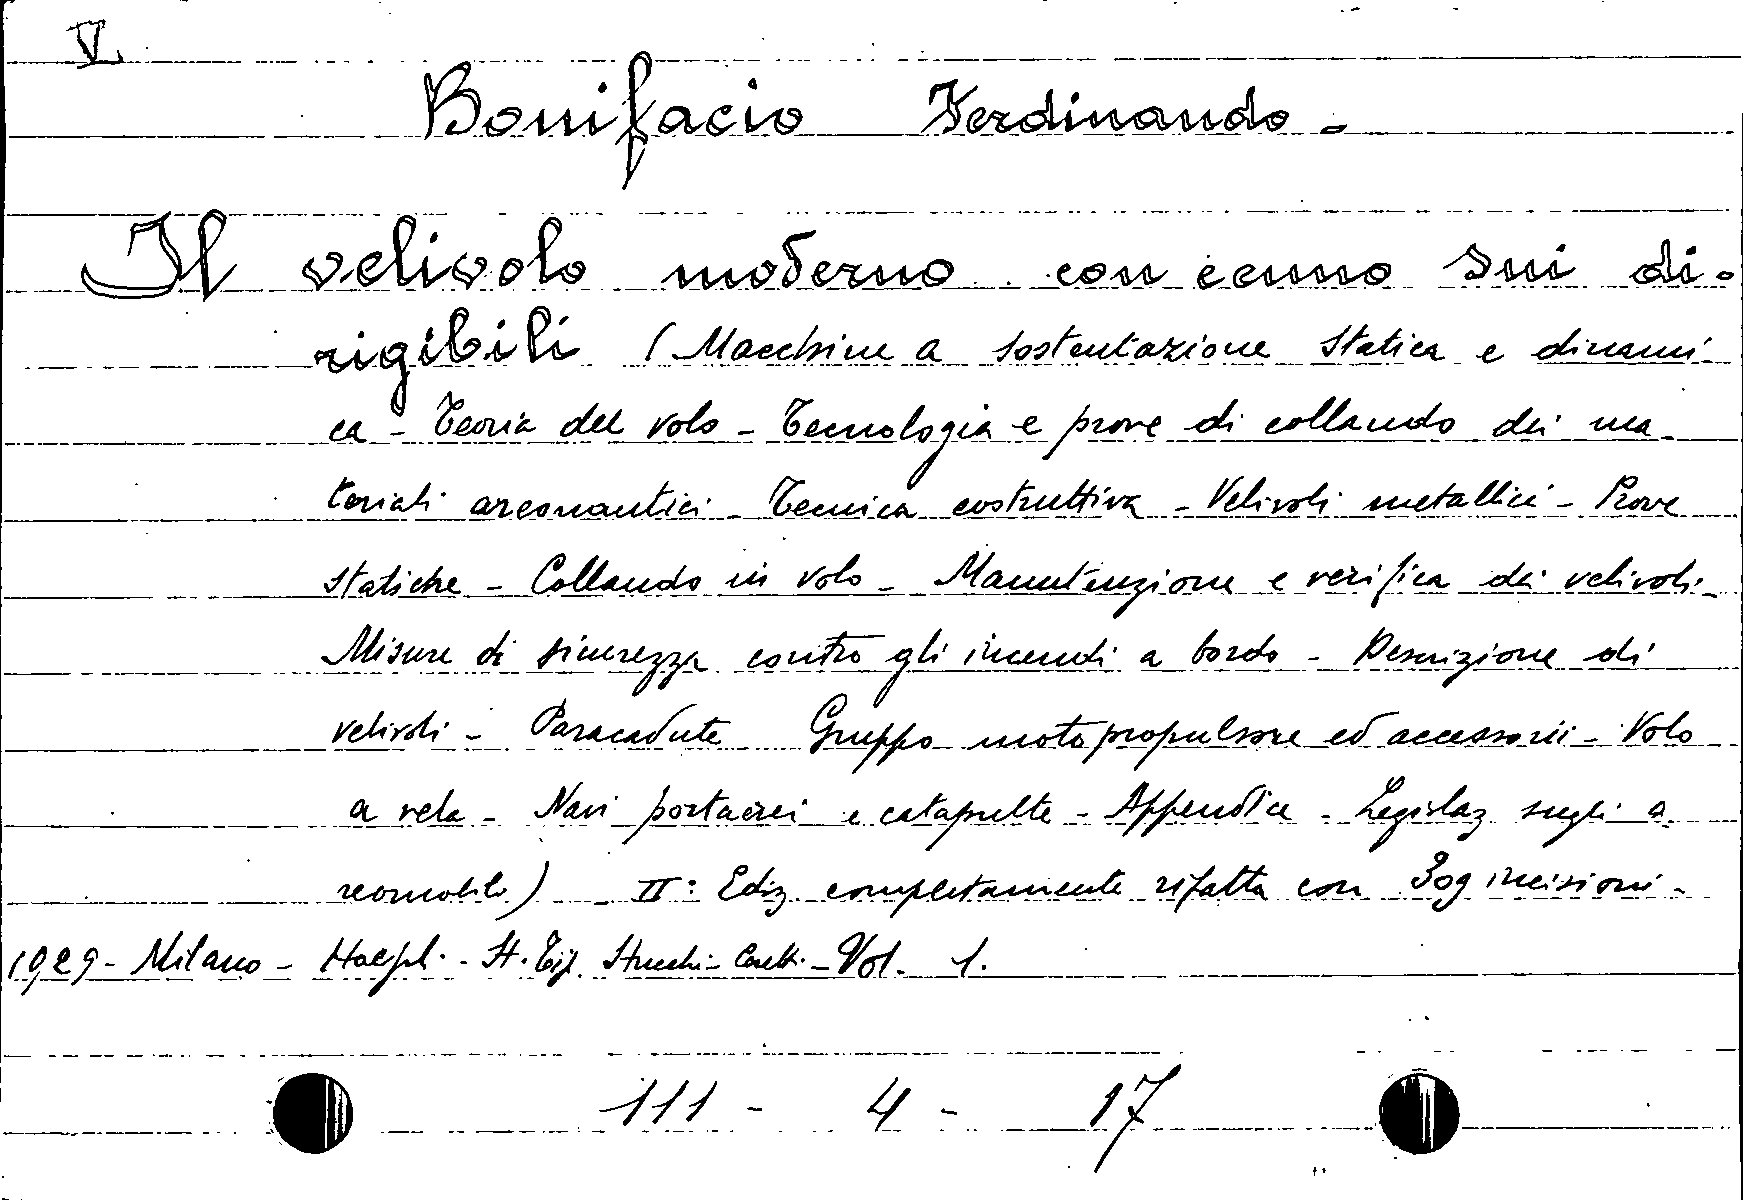 V
Bonifacio Ferdinando -
Il velivolo moderno con cenno sui di-
rigibili (Macchine a sostentazione statica e dinami-
ca - Teoria del volo - Tecnologia e prove di collaudo dei ma-
teriali areonautici - Tecnica costruttiva - Velivoli metallici - Prove
statiche - Collaudo in volo - Manutenzione e verifica dei velivoli -
Misure di sicurezza contro gli incendi a bordo - Descrizione di
velivoli - Paracadute Gruppo motopropulsore ed accessorii - Volo
a vela - Navi portaerei e catapulte - Appendice - Legislaz sugli a
reomobili) II: Ediz completamente rifatta con 309 incisioni -
1929 - Milano - Hoepl. - St. Tip. Stucchi - Ceretti - Vol. 1.
111 - 4 - 17